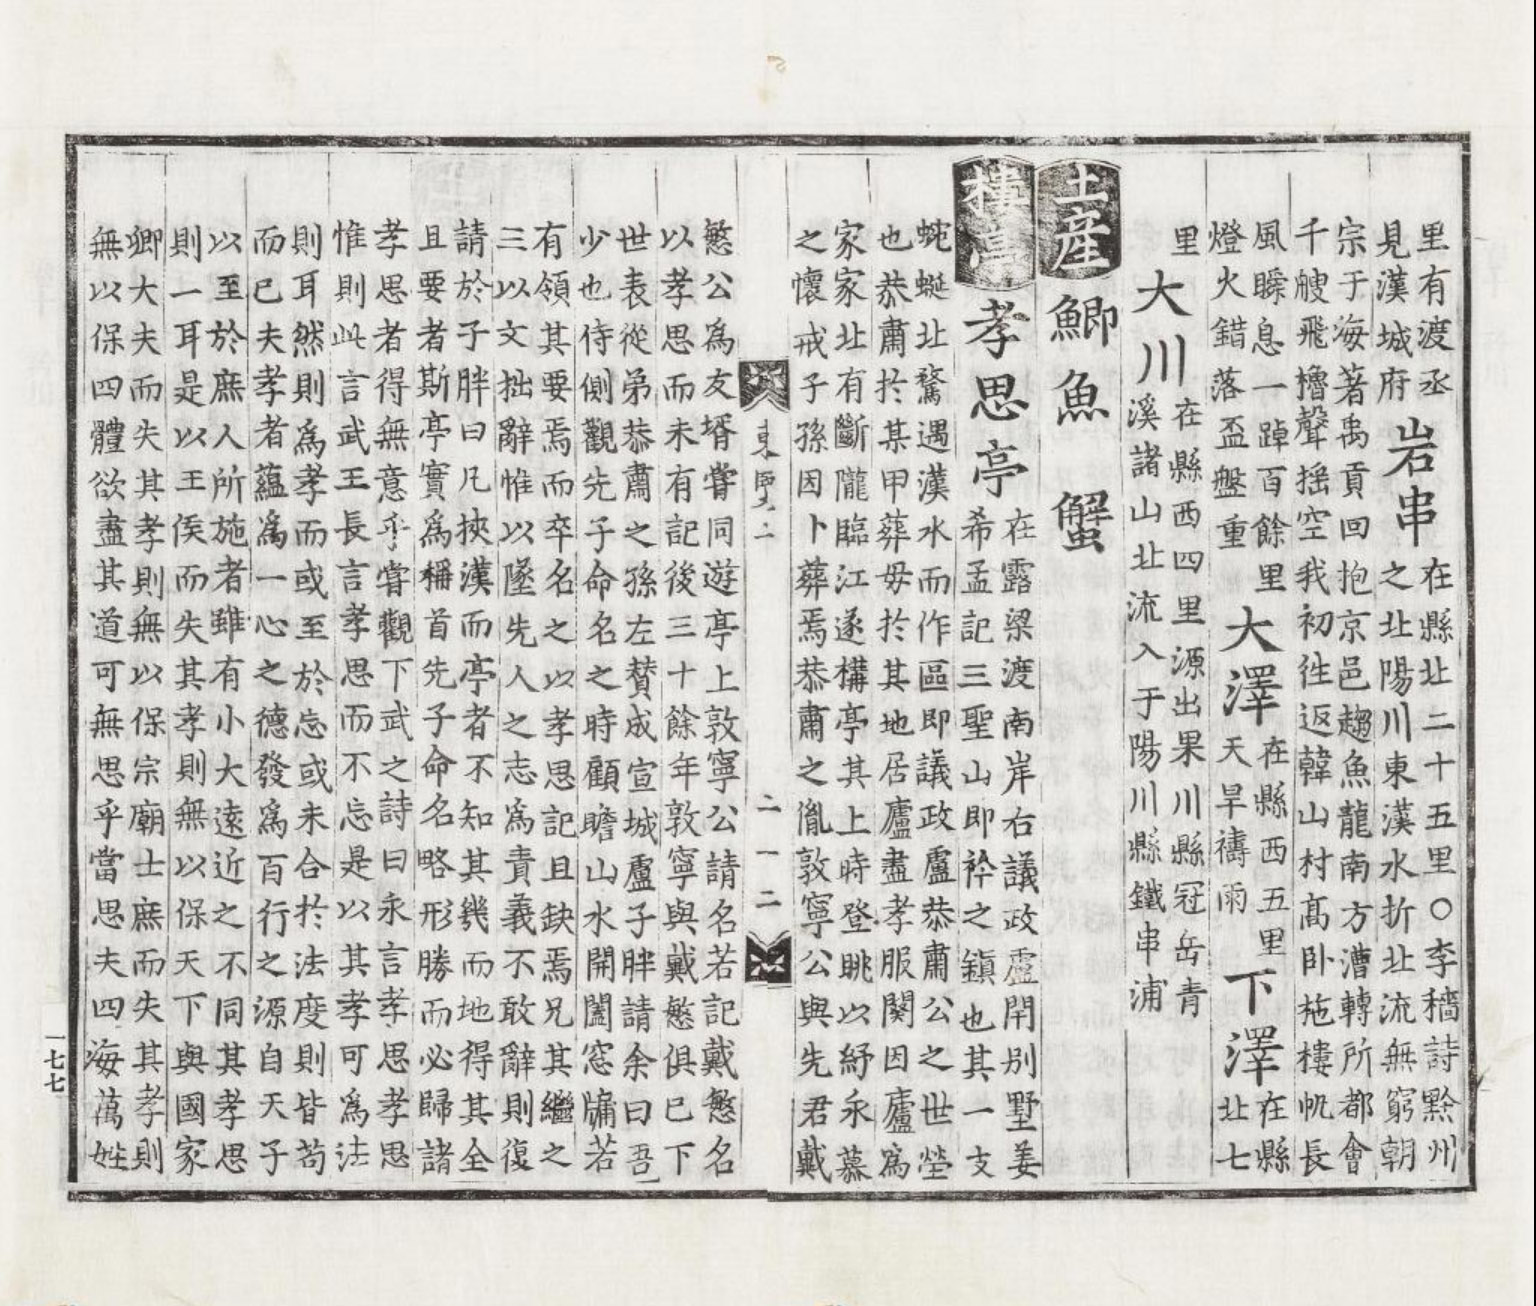 里有渡丞
見漢城府
岩串
在縣北二十五里○李穡詩黔州
之北陽川東漢水折北流無窮朝
宗于海著禹貢回抱京邑趨魚龍南方漕轉所都會
千艘飛櫓聲搖空我初徃返韓山村髙卧柂樓帆長
風瞬息一踔百餘里
燈火錯落盃盤重
大澤
在縣西五里
天旱禱雨
下澤
在縣
北七
里
大川
在縣西四里源出果川縣冠岳青
溪諸山北流入于陽川縣鐵串浦
土産
鯽魚
蟹
樓亭
孝思亭
在露梁渡南岸右議政盧閈别墅姜
希孟記三聖山即衿之鎮也其一支
蜿蜒北騖遇漢水而作區即議政盧恭肅公之世塋
也恭肅扵某甲葬毋於其地居廬盡孝服闋因廬爲
家家北有斷隴臨江遂構亭其上時登眺以紓永慕
之懷戒子孫因卜葬焉恭肅之胤敦寧公與先君戴
慜公爲友壻甞同遊亭上敦寧公請名若記戴慜名
以孝思而未有記後三十餘年敦寧與戴慜俱已下
世表從弟恭肅之孫左賛成宣城盧子胖請余曰吾
少也侍側觀先子命名之時顧瞻山水開闔窓牖若
有領其要焉而卒名之以孝思記且缺焉兄其繼之
三以文拙辭惟以墜先人之志爲責義不敢辭則復
請於子胖曰凡挾漢而亭者不知其幾而地得其全
且要者斯亭實爲稱首先子命名略形勝而必歸諸
孝思者得無意乎甞觀下武之詩曰永言孝思孝思
惟則此言武王長言孝思而不忘是以其孝可爲法
則耳然則爲孝而或至於忘或未合扵法度則皆苟
而已夫孝者蘊爲一心之德發爲百行之源自天子
以至於庶人所施者雖有小大遠近之不同其孝思
則一耳是以王侯而失其孝則無以保天下與國家
卿大夫而失其孝則無以保宗廟士庶而失其孝則
無以保四體欲盡其道可無思乎當思夫四海萬姓
二一二
一七七